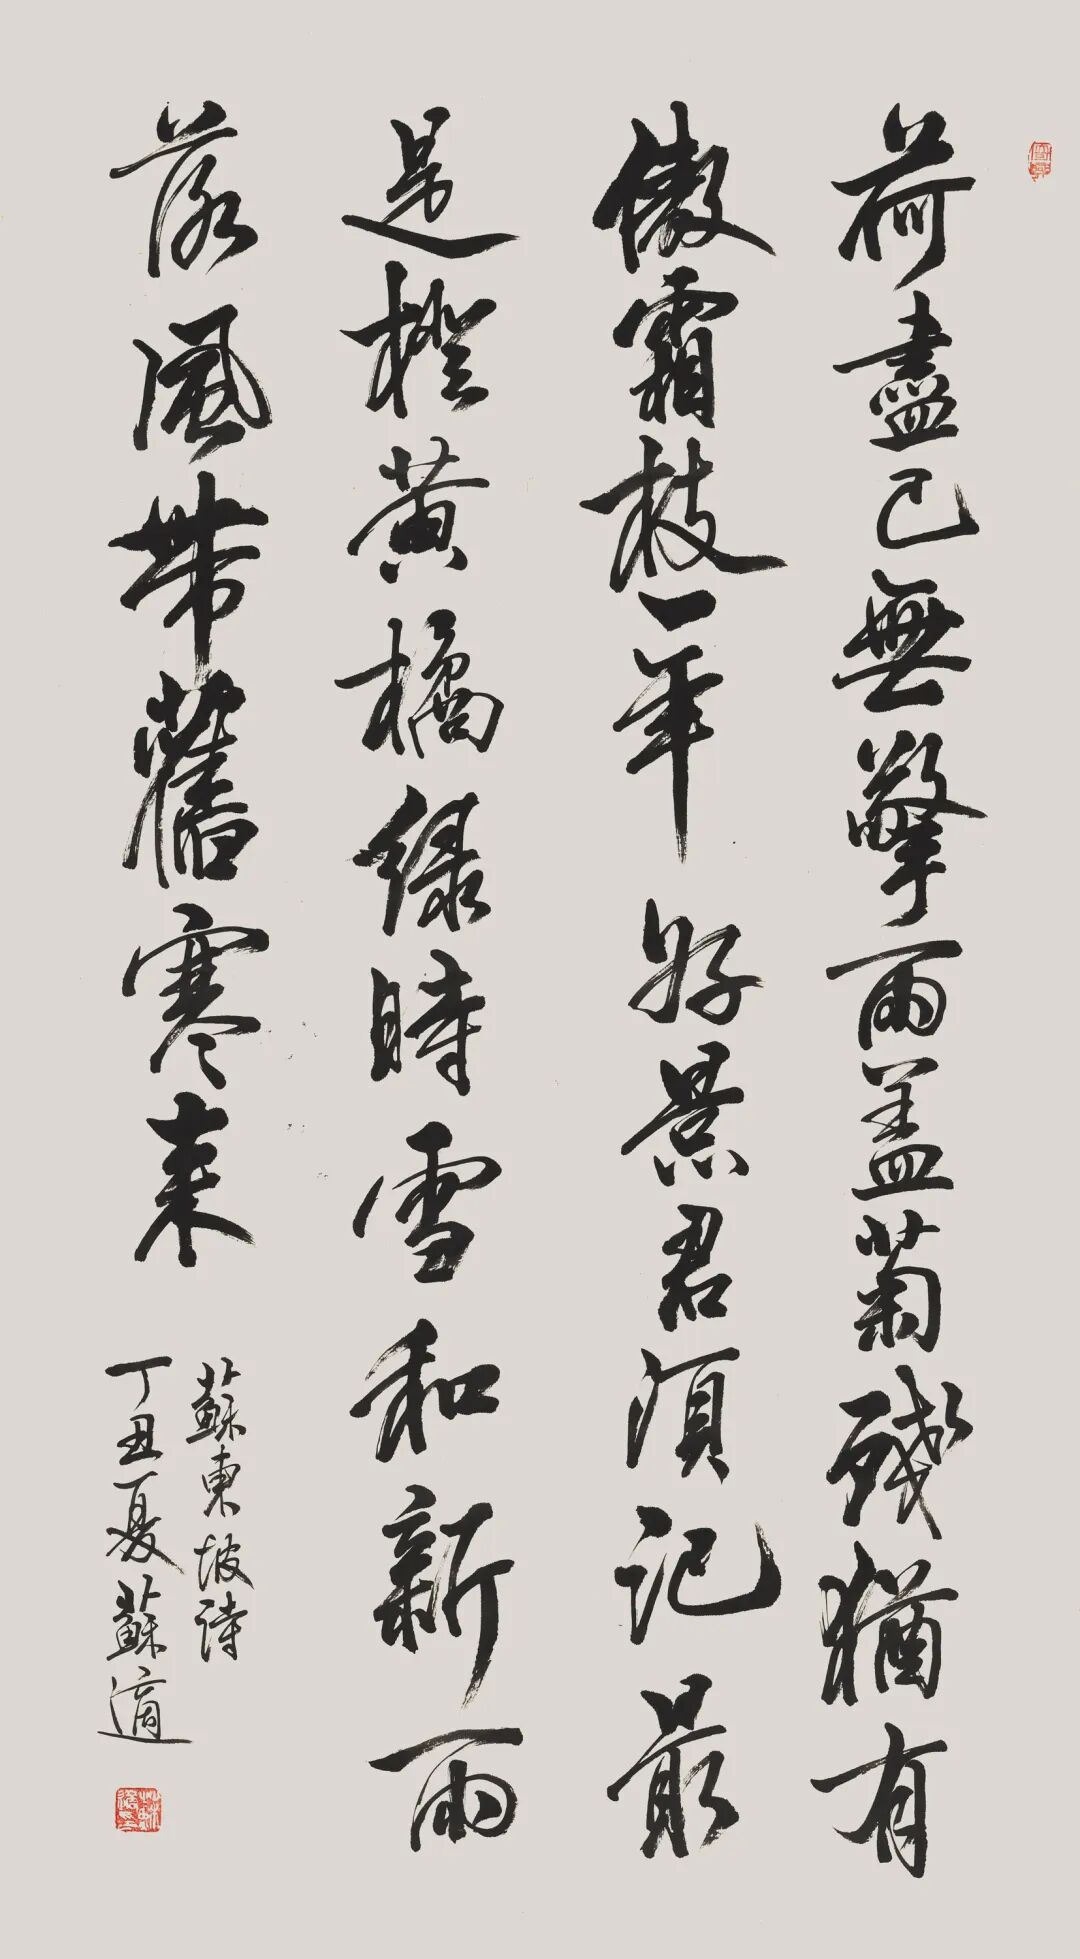 荷盡已無擎雨盖菊殘猶有
傲霜枝一年好景君須記最
是橙黃橘綠時雪和新雨
落風帶舊寒來
蘇東坡詩
丁丑夏蘇適